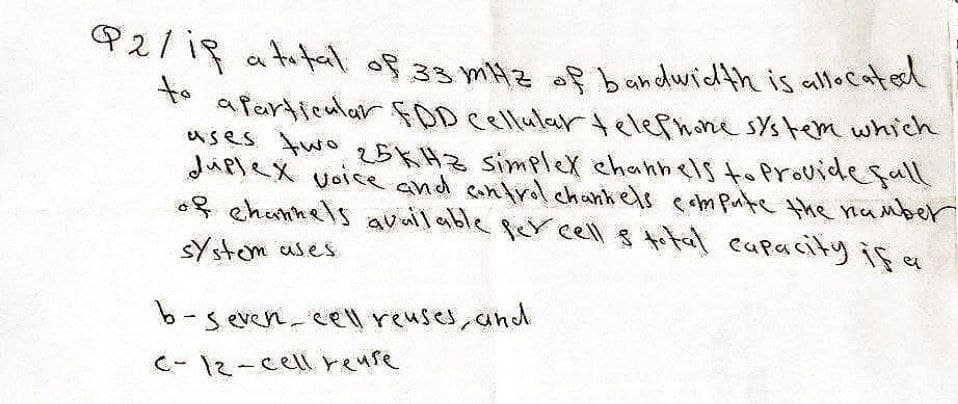 Q2/ if a total of 33 mHz of bandwidth is allocated
to a particular FDD cellular telephone system which
uses two 25KHz simplex channels to provide full
duplex voice and control channels compute the number
of channels available per cell & total capacity if a
system uses
b- seven-cell reuses, and
c- 12-cell reuse